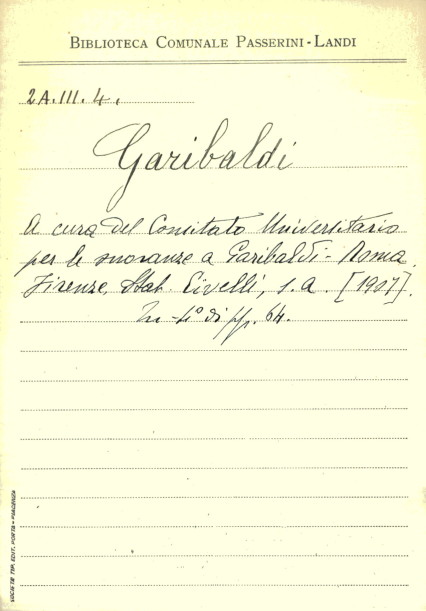 BIBLIOTECA COMUNALE PASSERINI-LANDI
2A.III.4.
Garibaldi
A cura del Comitato Universitario
per le onoranze a Garibaldi - Roma.
Firenze, Stab. Civelli, s.a. [1907].
In-4° di pp. 64.
SOCIETÀ TIP. EDIT. PORTA - PIACENZA